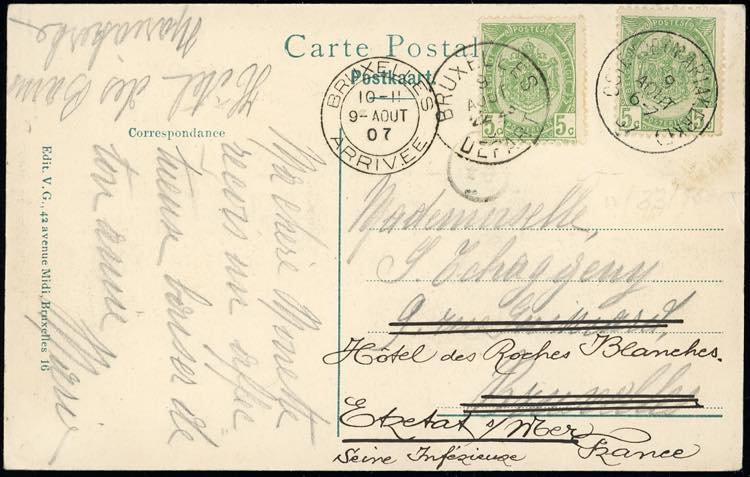 Carte Postale
Postkaart
BRUXELLES
10-11
9-AOUT
07
ARRIVEE
BRUXELLES
9
AOUT
DEPART
POSTES
5c
5c
POSTES
9
AOUT
5c
5c
Correspondance
Edit. V. G., 42 avenue Midi, Bruxelles 16
Hôtel des Bains
Mariakerke
Ma chère Minette
reçois un affec
tueux baiser de
ton amie
Mademoiselle,
S. Tchaggeny
9 rue
Hôtel des Roches Blanches.
Bruxelles
Etretat s/Mer
France
Seine Inférieure